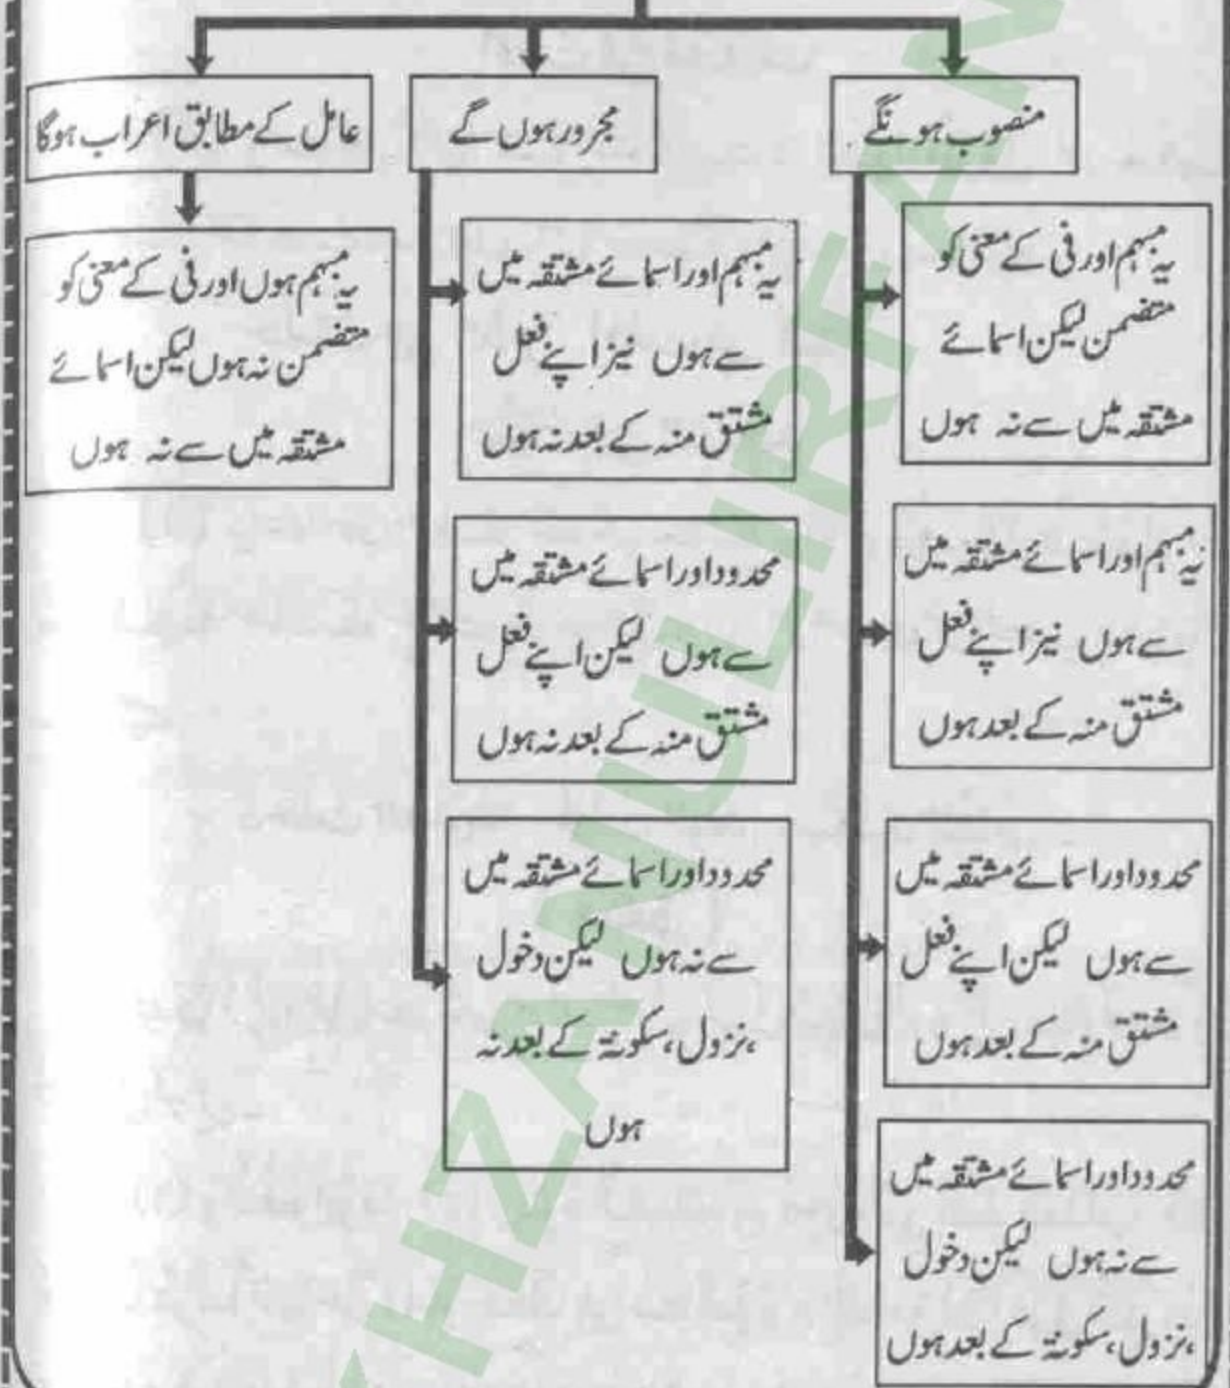 منصوب ہونگے
یہ مبہم اور فی کے معنی کو
متضمن لیکن اسمائے
مشتقہ میں سے نہ ہوں
یہ مبہم اور اسمائے مشتقہ میں
سے ہوں نیز اپنے فعل
مشتق منہ کے بعد ہوں
محدود اور اسمائے مشتقہ میں
سے ہوں لیکن اپنے فعل
مشتق منہ کے بعد ہوں
محدود اور اسمائے مشتقہ میں
سے نہ ہوں لیکن دخول
،نزول، سکونۃ کے بعد ہوں
مجرور ہوں گے
یہ مبہم اور اسمائے مشتقہ میں
سے ہوں نیز اپنے فعل
مشتق منہ کے بعد نہ ہوں
محدود اور اسمائے مشتقہ میں
سے ہوں لیکن اپنے فعل
مشتق منہ کے بعد نہ ہوں
محدود اور اسمائے مشتقہ میں
سے نہ ہوں لیکن دخول
،نزول، سکونۃ کے بعد نہ
ہوں
عامل کے مطابق اعراب ہوگا
یہ مبہم ہوں اور فی کے معنی کو
متضمن نہ ہوں لیکن اسمائے
مشتقہ میں سے نہ ہوں